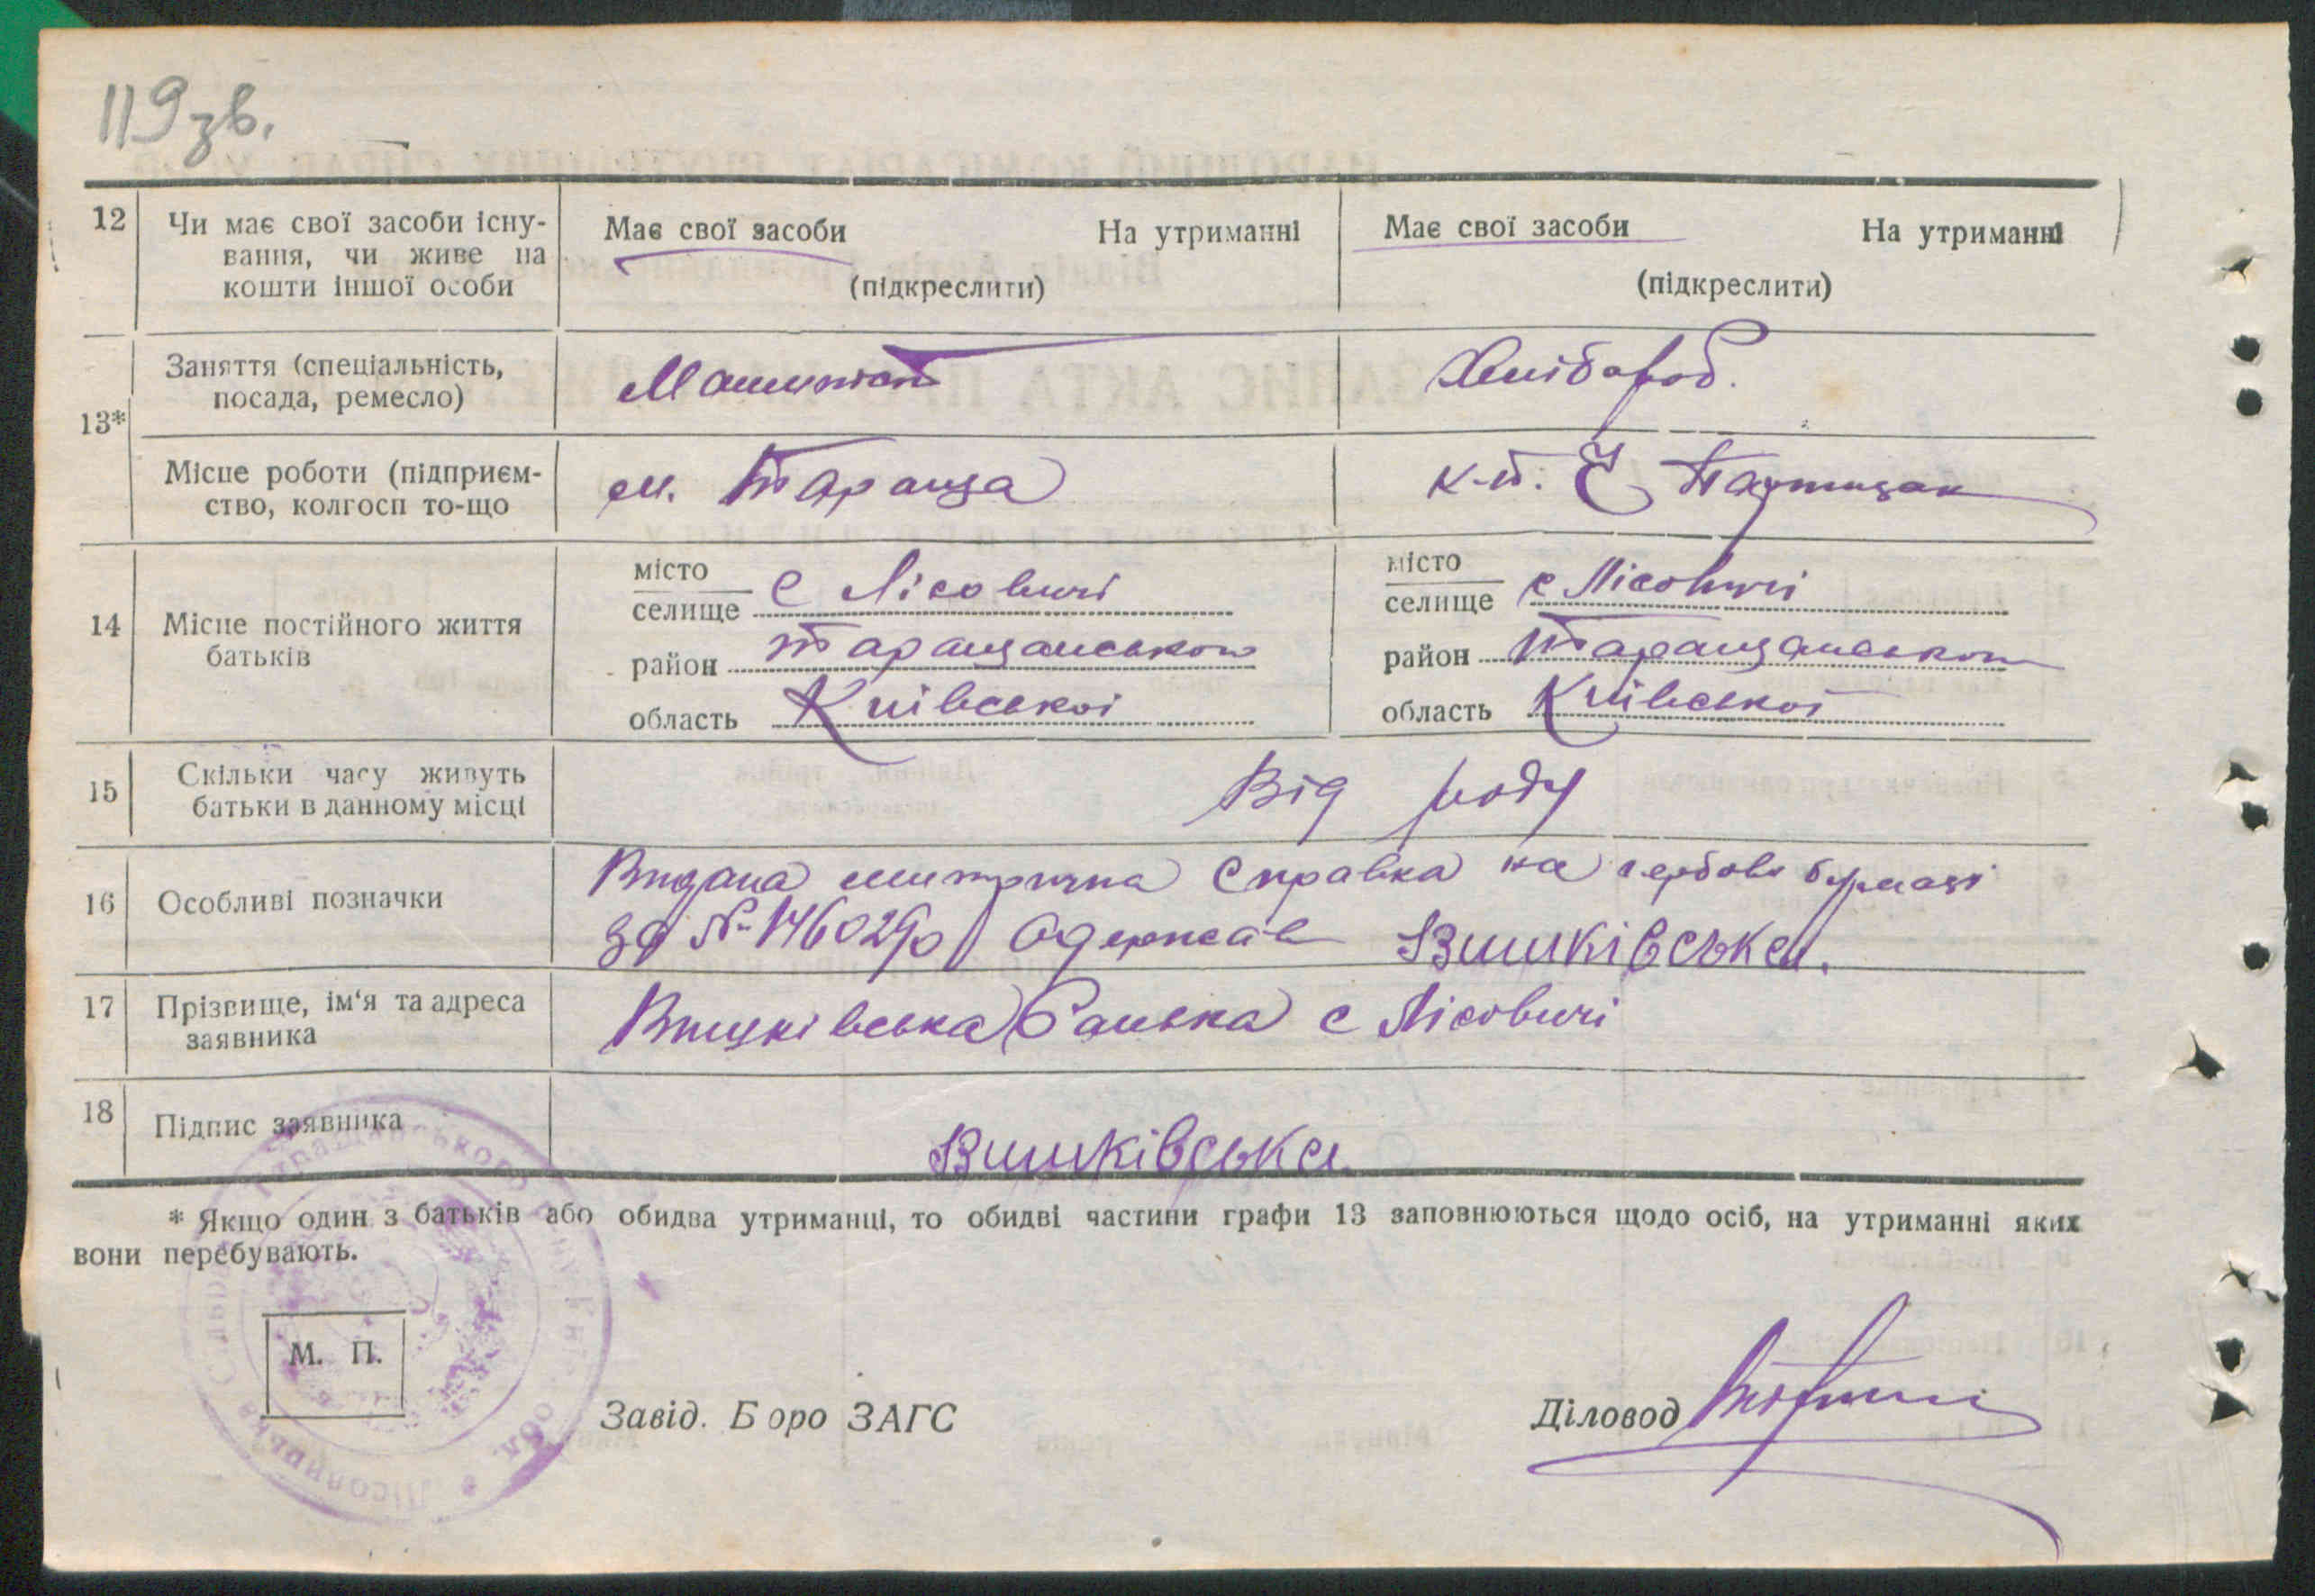 119 зв.
12 Чи має свої засоби існу- Має свої засоби На утриманні Має свої засоби На утриманні
вання, чи живе на
кошти іншої особи (підкреслити) (підкреслити)
13* Заняття (спеціальність, Машиніст Хлібороб.
посада, ремесло)
Місце роботи (підприєм- м. Тараща к-п.
ство, колгосп то-що
14 Місце постійного життя місто с Лісовичі місто с Лісовичі
батьків селище селище
район Таращанського район Таращанського
область Київської область Київської
15 Скільки часу живуть Від роду
батьки в данному місці
16 Особливі позначки Видана метрична справка на гербові бумазі
за № 146029 Одержав Вишківська.
17 Прізвище, ім'я та адреса Вишківська Ганька с Лісовичі
заявника
18 Підпис заявника Вишківська
* Якщо один з батьків або обидва утриманці, то обидві частини графи 13 заповнюються щодо осіб, на утриманні яких
вони перебувають.
М. П.
Завід. Б оро ЗАГС Діловод